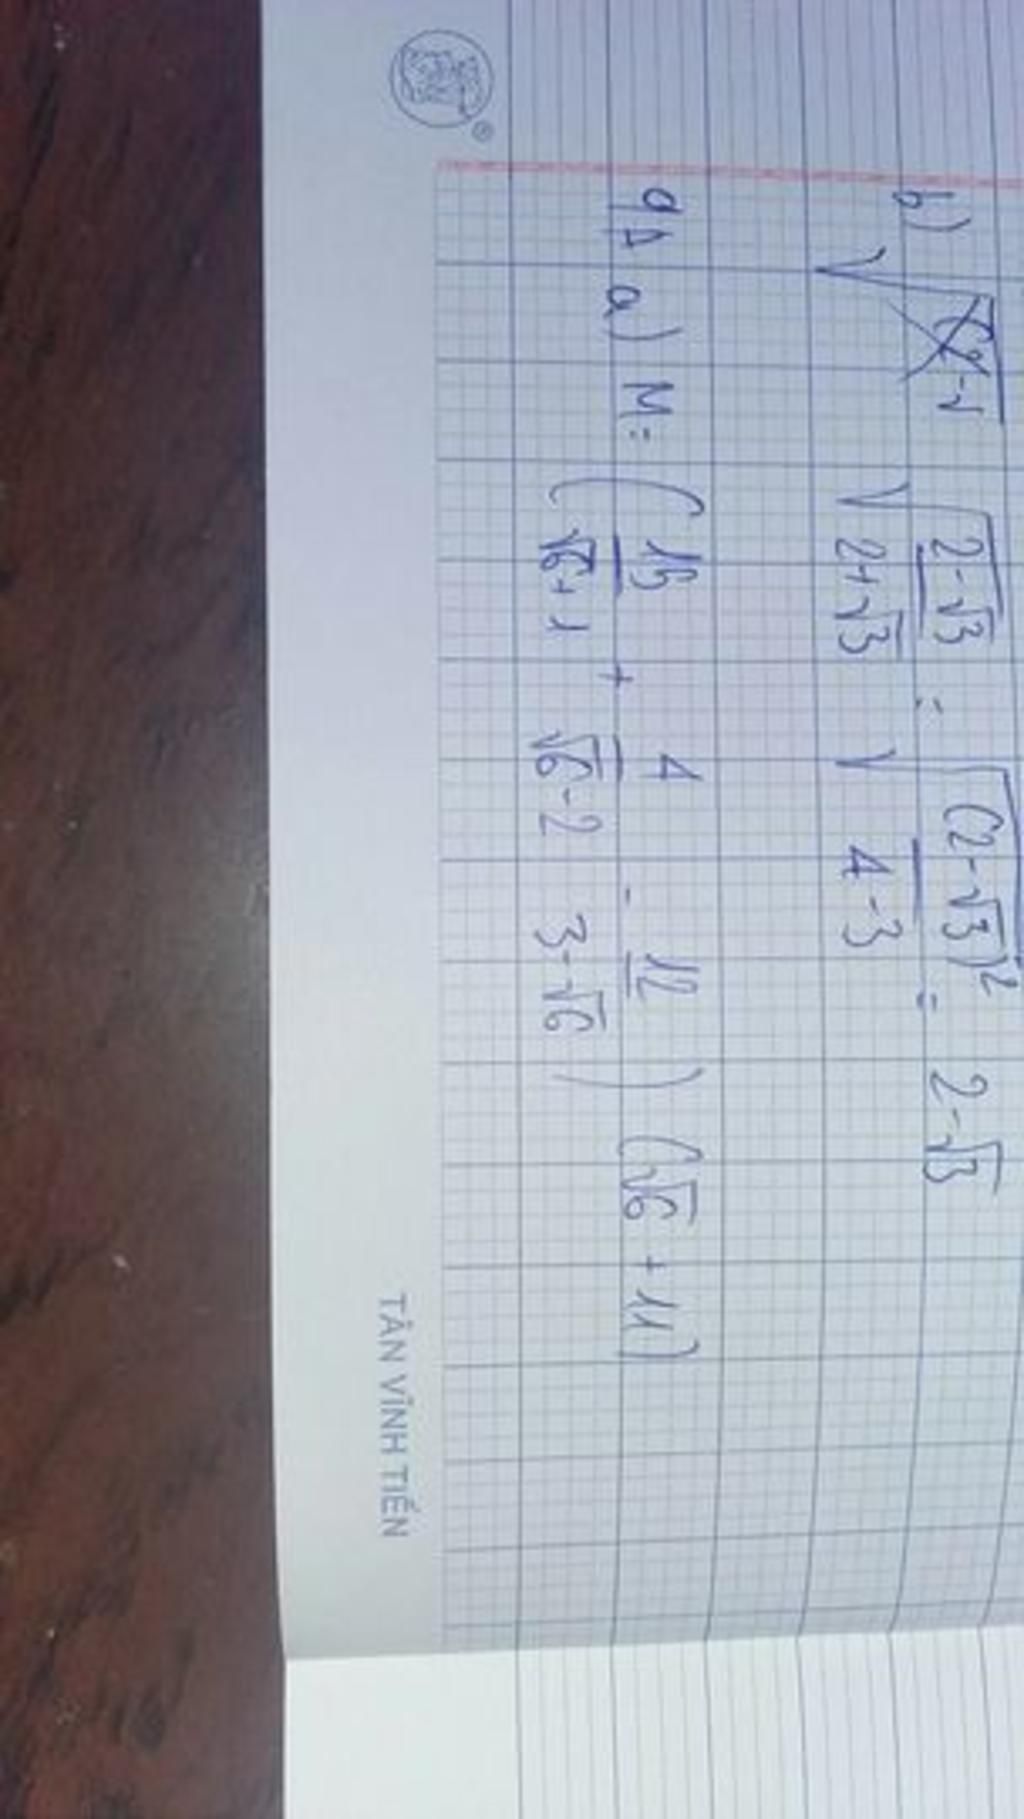 b) √(2-√3)/(2+√3) = √(2-√3)²/(4-3) = 2-√3
91 a) M = (15/(√6+1) + 4/(√6-2) - 12/(3-√6)) (√6+11)
TÂN VĨNH TIẾN
®